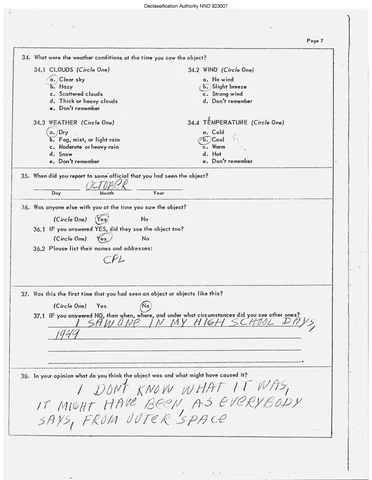 Declassification Authority NND 923007
Page 7
34. What were the weather conditions at the time you saw the object?
34.1 CLOUDS (Circle One) 34.2 WIND (Circle One)
a. Clear sky a. No wind
b. Hazy b. Slight breeze
c. Scattered clouds c. Strong wind
d. Thick or heavy clouds d. Don't remember
e. Don't remember
34.3 WEATHER (Circle One) 34.4 TEMPERATURE (Circle One)
a. Dry a. Cold
b. Fog, mist, or light rain b. Cool
c. Moderate or heavy rain c. Warm
d. Snow d. Hot
e. Don't remember e. Don't remember
35. When did you report to some official that you had seen the object?
OCTOBER
Day Month Year
36. Was anyone else with you at the time you saw the object?
(Circle One) Yes No
36.1 IF you answered YES, did they see the object too?
(Circle One) Yes No
36.2 Please list their names and addresses:
CPL
37. Was this the first time that you had seen an object or objects like this?
(Circle One) Yes No
37.1 IF you answered NO, then when, where, and under what circumstances did you see other ones?
I SAW ONE IN MY HIGH SCHOOL DAYS,
1949
38. In your opinion what do you think the object was and what might have caused it?
I DONT KNOW WHAT IT WAS,
IT MIGHT HAVE BEEN, AS EVERYBODY
SAYS, FROM OUTER SPACE